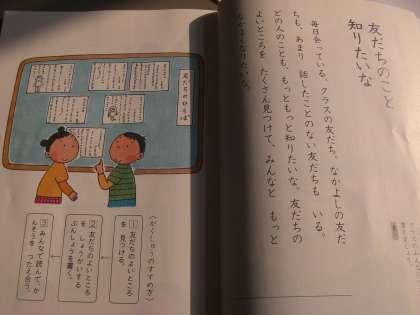 友だちのこと
知りたいな
毎日会っている、クラスの友だち。なかよしの友だ
ちも、あまり 話したことのない友だちも いる。
どの人のことも、もっともっと知りたいな。友だちの
よいところを たくさん見つけて、みんなと もっと
なかよくなりたいな。
友だちのひろば
〈がくしゅうのすすめ方〉
1 友だちのよいところ
を 見つける。
2 友だちのよいところ
を しょうかいする
ぶんしょうを書く。
3 みんなで読んで、か
んそうを つたえ合う。